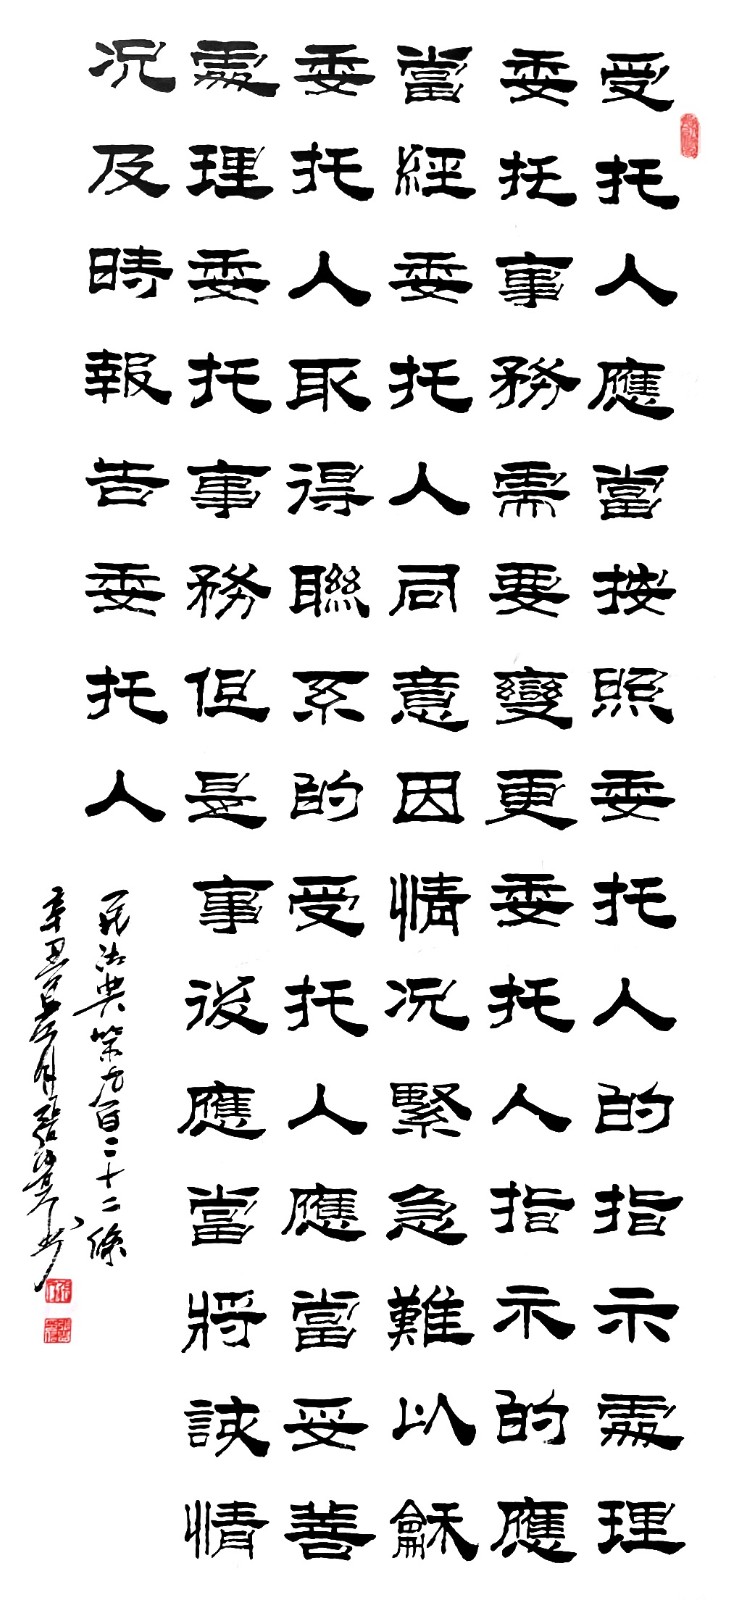 受托人應當按照委托人的指示處理
委托事務需要變更委托人指示的應
當經委托人同意因情况緊急難以龢
委托人取得聯系的受托人應當妥善
處理委托事務但是事後應當將該情
况及時報告委托人
民法典第九百二十二條
辛丑夏月書